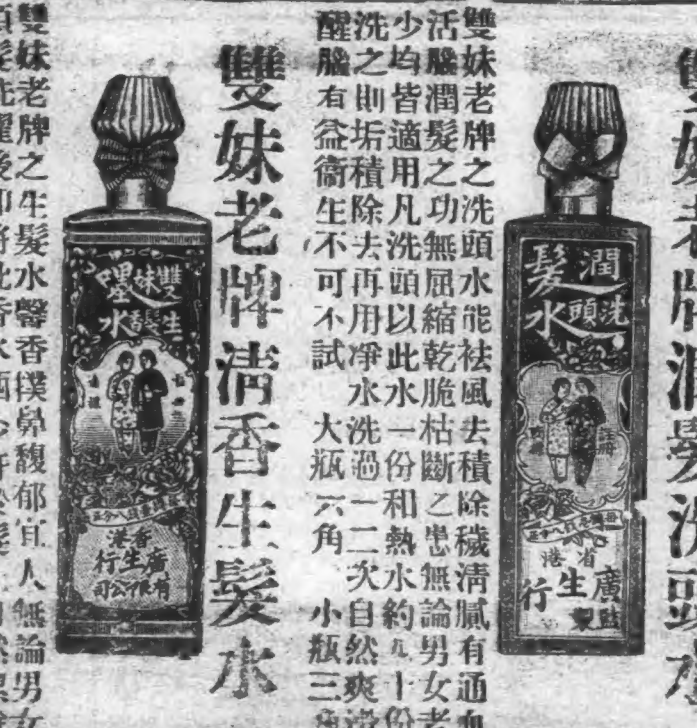 雙妹老牌潤髮洗頭水
潤髮
洗頭水
註冊
省港
廣生行
雙妹老牌之洗頭水能袪風去積除穢淸膩有通血
活腦潤髮之功無屈縮乾脆枯斷之患無論男女老
少均皆適用凡洗頭以此水一份和熱水約九十份
洗之則垢積除去再用凈水洗過一二次自然爽
醒腦有益衞生不可不試 大瓶六角 小瓶三角
雙妹老牌淸香生髮水
雙妹嘜
生髮香水
香港
廣生行
有限公司
雙妹老牌之生髮水馨香撲鼻馥郁宜人無論男女